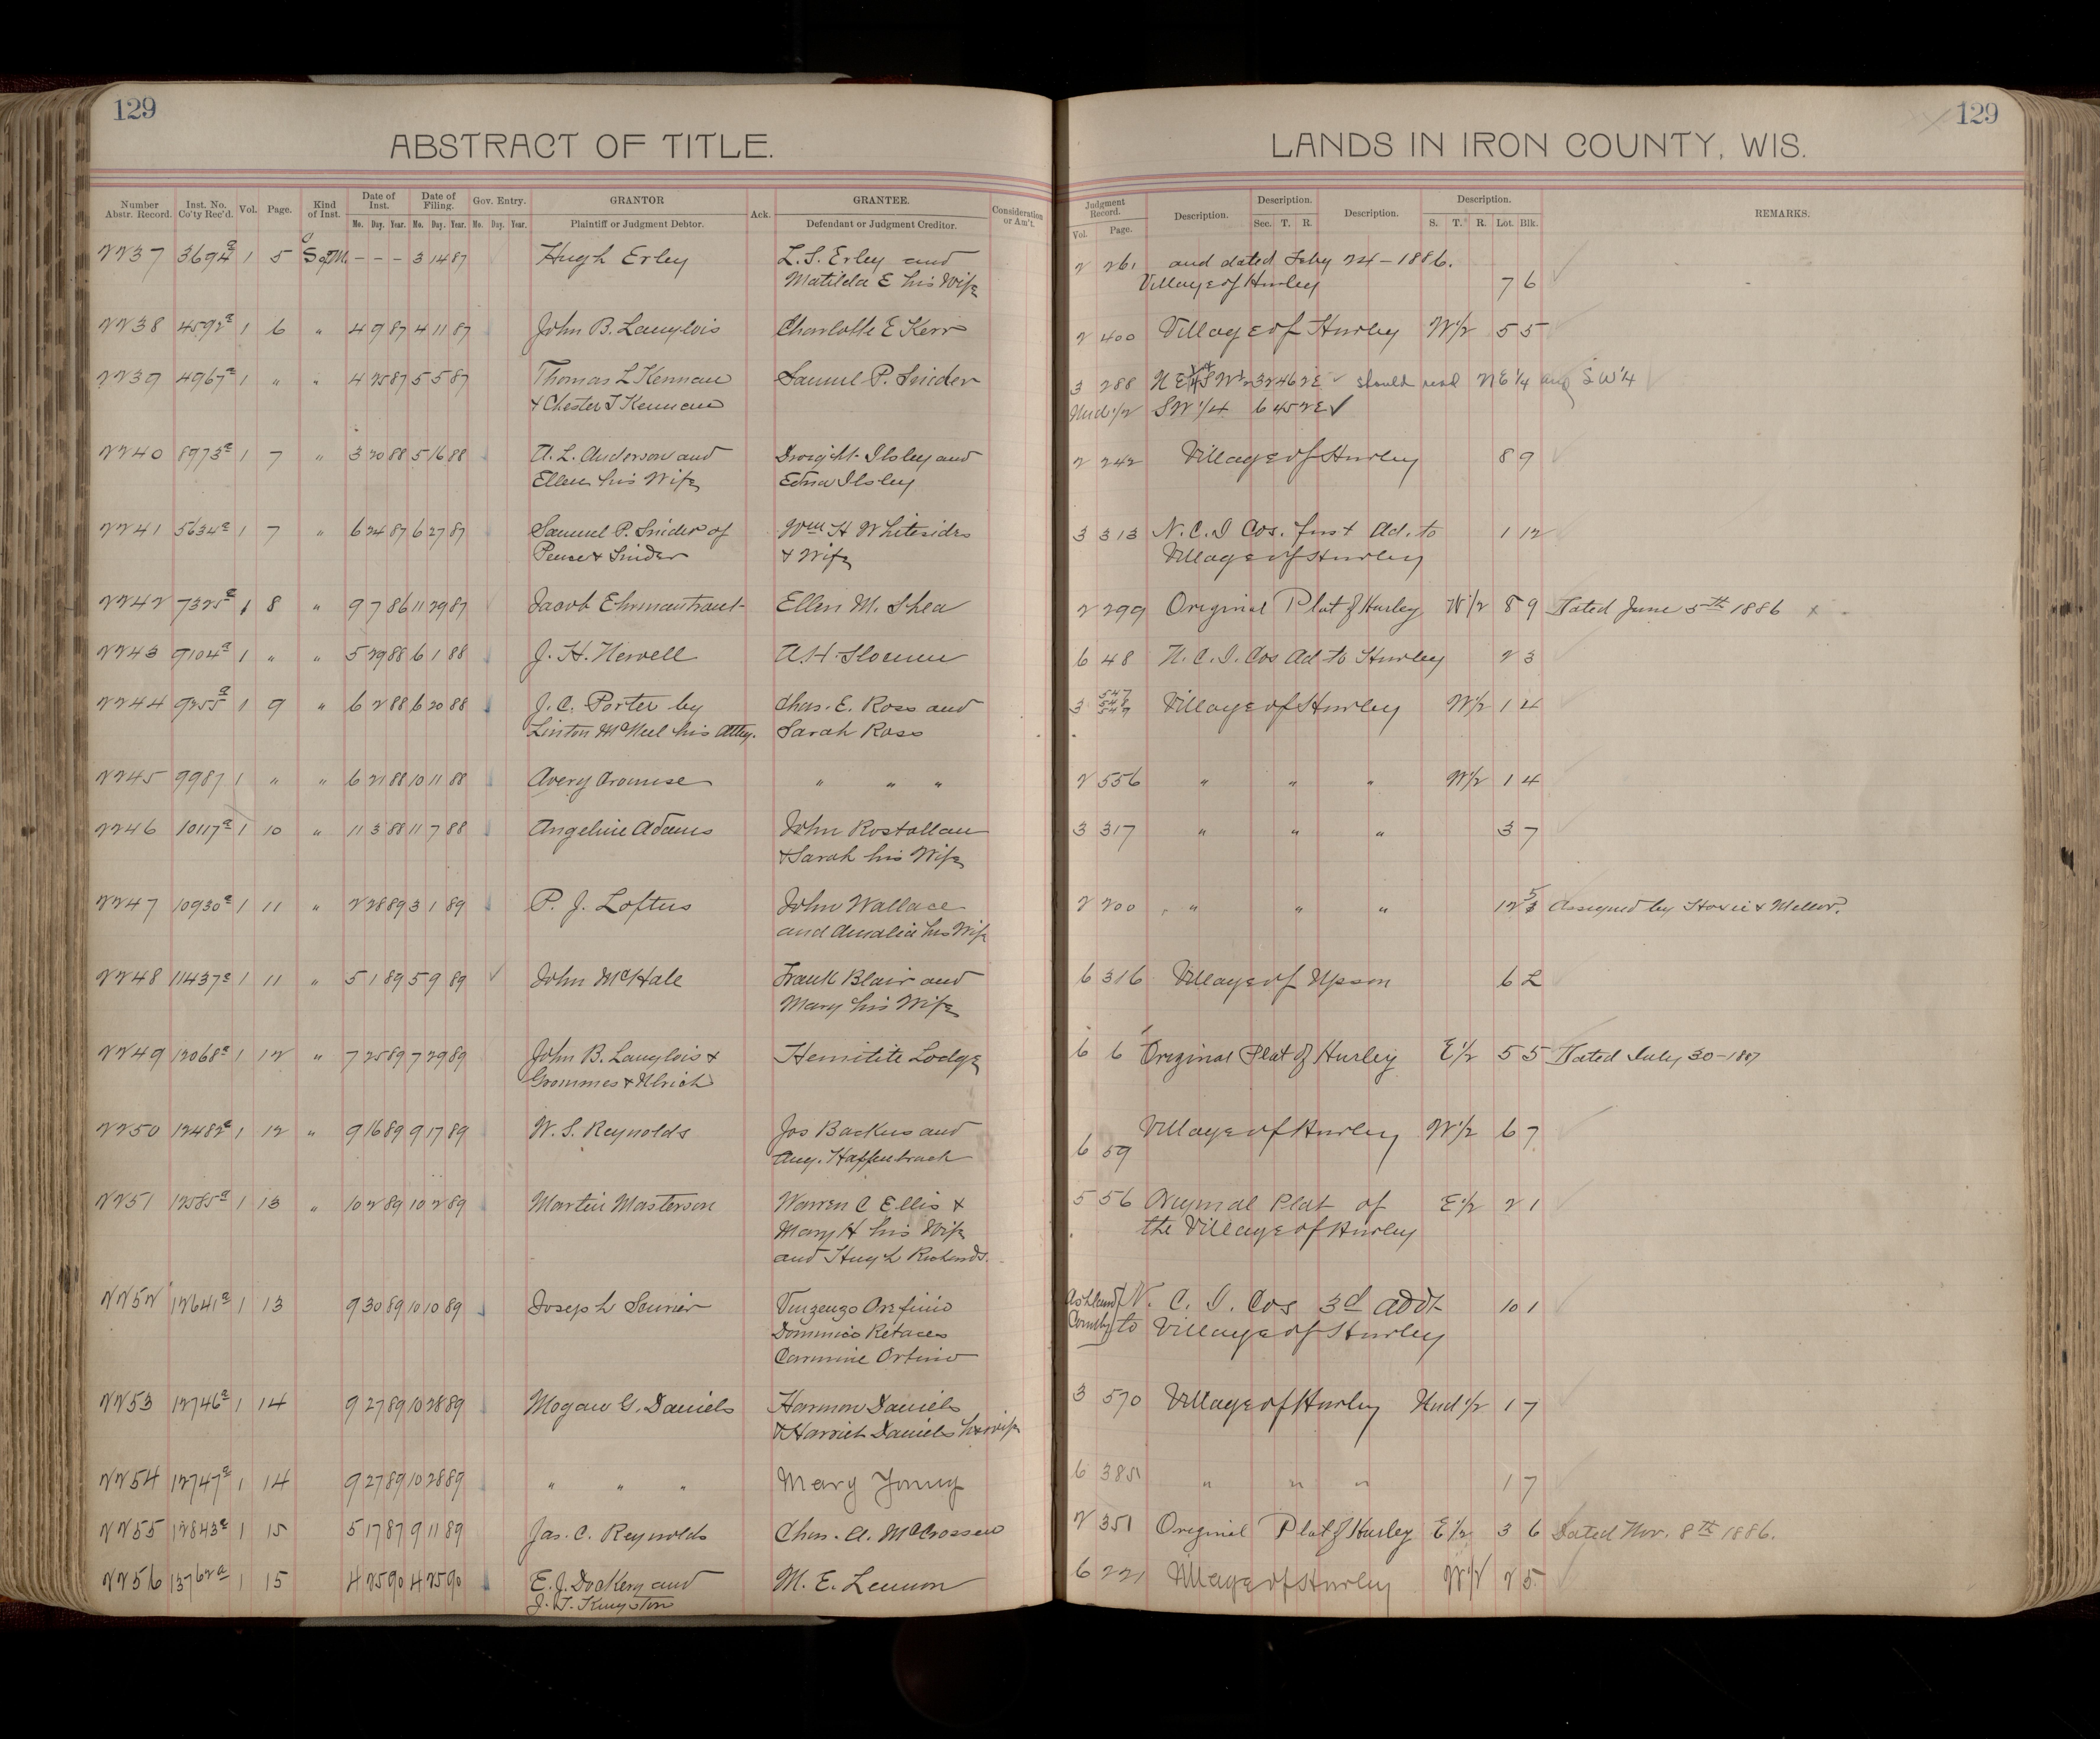 129
ABSTRACT OF TITLE.
Number Abstr. Record. Inst. No. Co'ty Rec'd. Vol. Page. Kind of Inst. Date of Inst. Date of Filing. Gov. Entry. GRANTOR Ack. GRANTEE. Consideration or Am't.
Mo. Day. Year. Mo. Day. Year. Mo. Day. Year. Plaintiff or Judgment Debtor. Defendant or Judgment Creditor.
2237 3694a 1 5 S of M. - - - 3 14 87 Hugh Erley L. S. Erley and
Matilda E his Wife
2238 4592a 1 6 " 4 9 87 4 11 87 John B. Langlois Charlotte E Kerr
2239 4967a 1 " " 4 25 87 5 5 87 Thomas L Kennan Samuel P. Snider
& Chester T Kennan
2240 8973a 1 7 " 3 20 88 5 16 88 A. L. Anderson and Dwight Ilsley and
Ellen his Wife Edna Ilsley
2241 5634a 1 7 " 6 24 87 6 27 87 Samuel P. Snider of Wm H Whitesides
Pense & Snider & Wife
2242 7325a 1 8 " 9 7 86 11 29 87 Jacob Ehrmantraut Ellen M. Shea
2243 9104a 1 " " 5 29 88 6 1 88 J. H. Newell A. H. Slocum
2244 9255a 1 9 " 6 2 88 6 20 88 J. C. Porter by Chas. E. Ross and
Linton McNeel his Atty. Sarah Ross
2245 9987 1 " " 6 21 88 10 11 88 Avery Aromise " " "
2246 10117a 1 10 " 11 3 88 11 7 88 Angeline Adams John Rostallan
& Sarah his Wife
2247 10930a 1 11 " 2 28 89 3 1 89 P. J. Loftus John Wallace
and Amalia his Wife
2248 11437a 1 11 " 5 1 89 5 9 89 John McHale Frank Blair and
Mary his Wife
2249 12068a 1 12 " 7 25 89 7 29 89 John B. Langlois & Hemitite Lodge
Grommes & Ulrich
2250 12482a 1 12 " 9 16 89 9 17 89 W. S. Reynolds Jos Backus and
Aug. Haffenbrach
2251 12585a 1 13 " 10 2 89 10 2 89 Martin Masterson Warren C Ellis &
Mary H his Wife
and Hugh Richards.
2252 12641a 1 13 9 30 89 10 10 89 Joseph Sourier Vinzenzo Orefinio
Dominico Retaces
Carmine Orfino
2253 12746a 1 14 9 27 89 10 28 89 Mogan G. Daniels Harmon Daniels
& Harriet Daniels his wife
2254 12747a 1 14 9 27 89 10 28 89 " " " Mary Young
2255 12843a 1 15 5 17 87 9 11 89 Jas. C. Reynolds Chas. A. McCrossen
2256 13762a 1 15 4 25 90 4 25 90 E. J. Dockery and M. E. Lennon
J. T. Kingston
129
LANDS IN IRON COUNTY, WIS.
Judgment Record. Description. Description. Description. Description. REMARKS.
Vol. Page. Sec. T. R. S. T. R. Lot. Blk.
2 261 and dated Feby 24-1886.
Village of Hurley 7 6
2 400 Village of Hurley W 1/2 5 5
3 288 NE 1/4 of SW 1/2 32 46 2E should read NE 1/4 and SW 1/4
Und 1/2 SW 1/4 6 45 2E
2 242 Village of Hurley 8 9
3 313 N. C. I Cos. first Ad. to 1 12
Village of Hurley
2 299 Original Plat of Hurley W 1/2 8 9 Dated June 5th 1886 x
6 48 N. C. I. Cos Ad to Hurley 2 3
3 547 548 549 Village of Hurley W 1/2 1 4
2 556 " " " W 1/2 1 4
3 317 " " " 3 7
2 200 " " " 12 5 Assigned by Hoxie & Mellor.
6 316 Village of Upson 6 L
6 6 Original Plat of Hurley E 1/2 5 5 Dated July 30-1887
Village of Hurley W 1/2 6 7
6 59
5 56 Original Plat of E 1/2 2 1
the Village of Hurley
Ashland County N. C. I. Cos 3d addt 10 1
to Village of Hurley
3 570 Village of Hurley Und 1/2 1 7
6 385 " " " 1 7
2 351 Original Plat of Hurley E 1/2 3 6 Dated Nov. 8th 1886.
6 221 Village of Hurley W 1/2 2 5